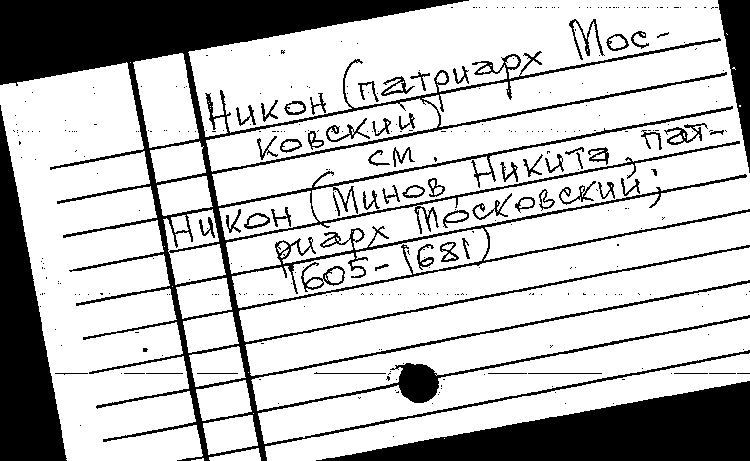 Никон (патриарх Мос-
ковский)
см.
Никон (Минов, Никита, пат-
риарх Московский;
1605-1681)